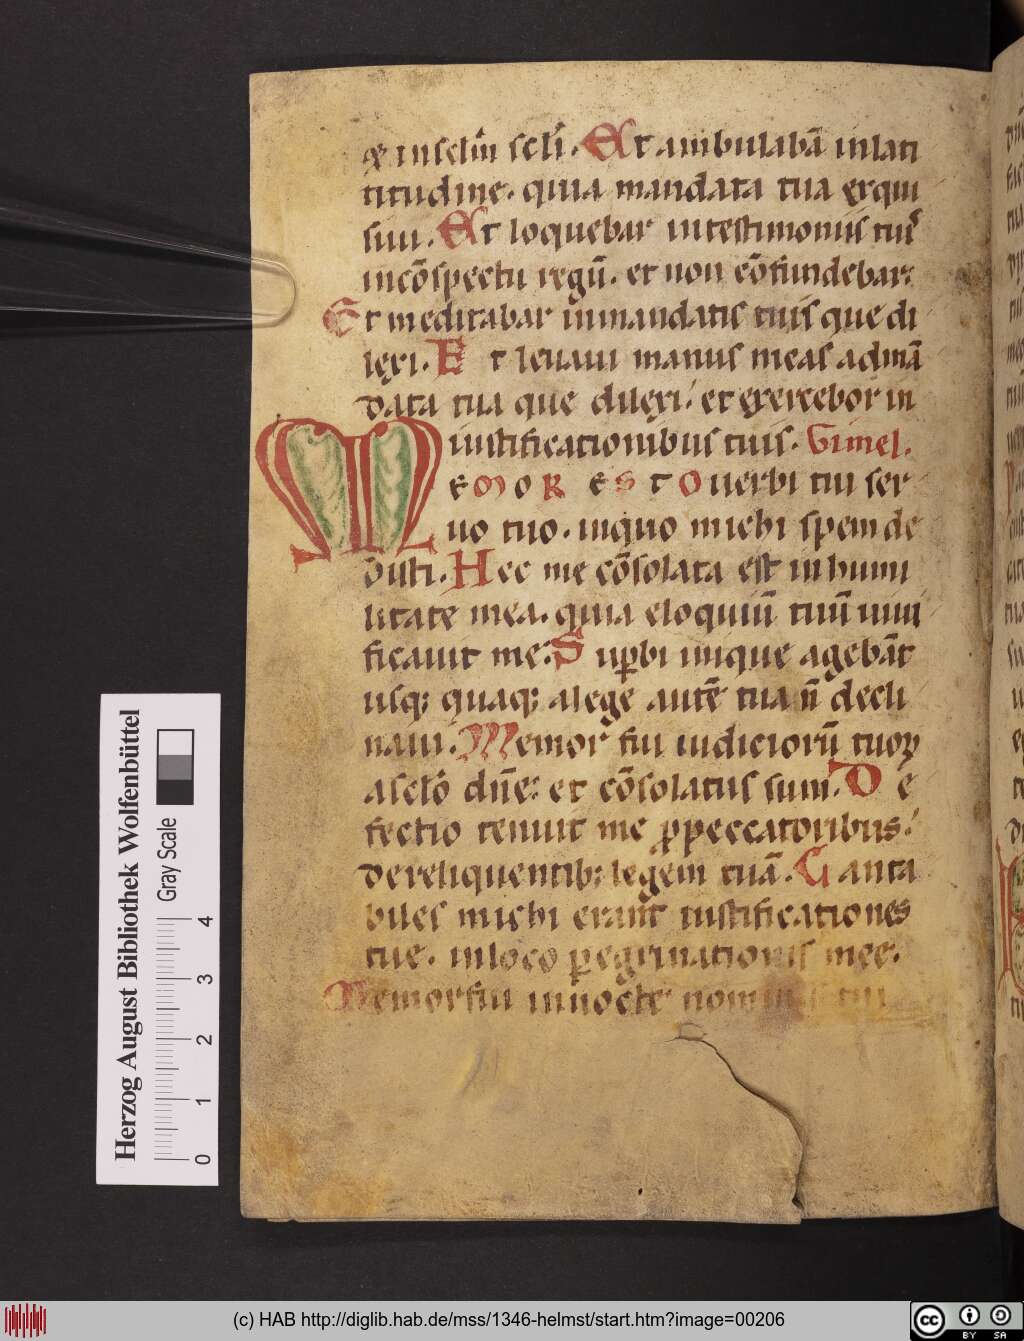 ⁊ inſclm̄ ſclī. Et ambulabā inlati
titudine. quia mandata tua exqui
ſiui. Et loquebar inteſtimoniiſ tuiſ
incōſpectu regū. et non cōfundebar.
Et meditabar inmandatiſ tuiſ que di
lexi. Et leuaui manuſ meaſ admā
data tua que dilexi. et exercebor in
iuſtificationibuſ tuiſ. Gimel.
MEMOR ESTO uerbi tui ſer
uo tuo. inquo michi ſpem de
diſti. Hec me cōſolata eſt inhumi
litate mea. quia eloquiū tuū uiui
ficauit me. Supbi inique agebāt
uſq; quaq; alege autē tua n̄ decli
naui. Memor fui iudiciorū tuoꝝ
aſclō dn̄e: et cōſolatuſ ſum. De
fectio tenuit me ꝓpeccatoribus.
derelinquentib; legem tuā. Canta
bileſ michi erant iuſtificationes
tue. inloco ꝑegrinationiſ mee.
Memorfui innocte nominiſ tui
Herzog August Bibliothek Wolfenbüttel
Gray Scale
0 1 2 3 4
(c) HAB http://diglib.hab.de/mss/1346-helmst/start.htm?image=00206
cc BY SA